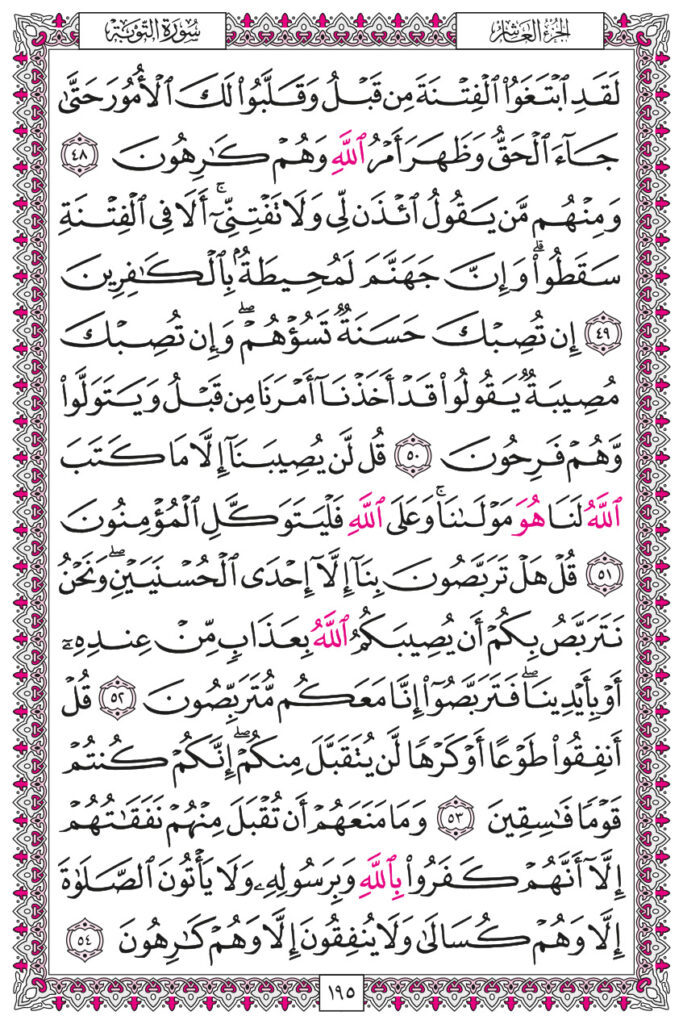 الجزء العاشر
سورة التوبة
لَقَدِ ٱبْتَغَوُا۟ ٱلْفِتْنَةَ مِن قَبْلُ وَقَلَّبُوا۟ لَكَ ٱلْأُمُورَ حَتَّىٰ
جَآءَ ٱلْحَقُّ وَظَهَرَ أَمْرُ ٱللَّهِ وَهُمْ كَـٰرِهُونَ ٤٨
وَمِنْهُم مَّن يَقُولُ ٱئْذَن لِّى وَلَا تَفْتِنِّىٓ ۚ أَلَا فِى ٱلْفِتْنَةِ
سَقَطُوا۟ ۗ وَإِنَّ جَهَنَّمَ لَمُحِيطَةٌۢ بِٱلْكَـٰفِرِينَ
٤٩ إِن تُصِبْكَ حَسَنَةٌ تَسُؤْهُمْ ۖ وَإِن تُصِبْكَ
مُصِيبَةٌ يَقُولُوا۟ قَدْ أَخَذْنَآ أَمْرَنَا مِن قَبْلُ وَيَتَوَلَّوا۟
وَّهُمْ فَرِحُونَ ٥٠ قُل لَّن يُصِيبَنَآ إِلَّا مَا كَتَبَ
ٱللَّهُ لَنَا هُوَ مَوْلَىٰنَا ۚ وَعَلَى ٱللَّهِ فَلْيَتَوَكَّلِ ٱلْمُؤْمِنُونَ
٥١ قُلْ هَلْ تَرَبَّصُونَ بِنَآ إِلَّآ إِحْدَى ٱلْحُسْنَيَيْنِ ۖ وَنَحْنُ
نَتَرَبَّصُ بِكُمْ أَن يُصِيبَكُمُ ٱللَّهُ بِعَذَابٍ مِّنْ عِندِهِۦٓ
أَوْ بِأَيْدِينَا ۖ فَتَرَبَّصُوٓا۟ إِنَّا مَعَكُم مُّتَرَبِّصُونَ ٥٢ قُلْ
أَنفِقُوا۟ طَوْعًا أَوْ كَرْهًا لَّن يُتَقَبَّلَ مِنكُمْ ۖ إِنَّكُمْ كُنتُمْ
قَوْمًا فَـٰسِقِينَ ٥٣ وَمَا مَنَعَهُمْ أَن تُقْبَلَ مِنْهُمْ نَفَقَـٰتُهُمْ
إِلَّآ أَنَّهُمْ كَفَرُوا۟ بِٱللَّهِ وَبِرَسُولِهِۦ وَلَا يَأْتُونَ ٱلصَّلَوٰةَ
إِلَّا وَهُمْ كُسَالَىٰ وَلَا يُنفِقُونَ إِلَّا وَهُمْ كَـٰرِهُونَ ٥٤
١٩٥